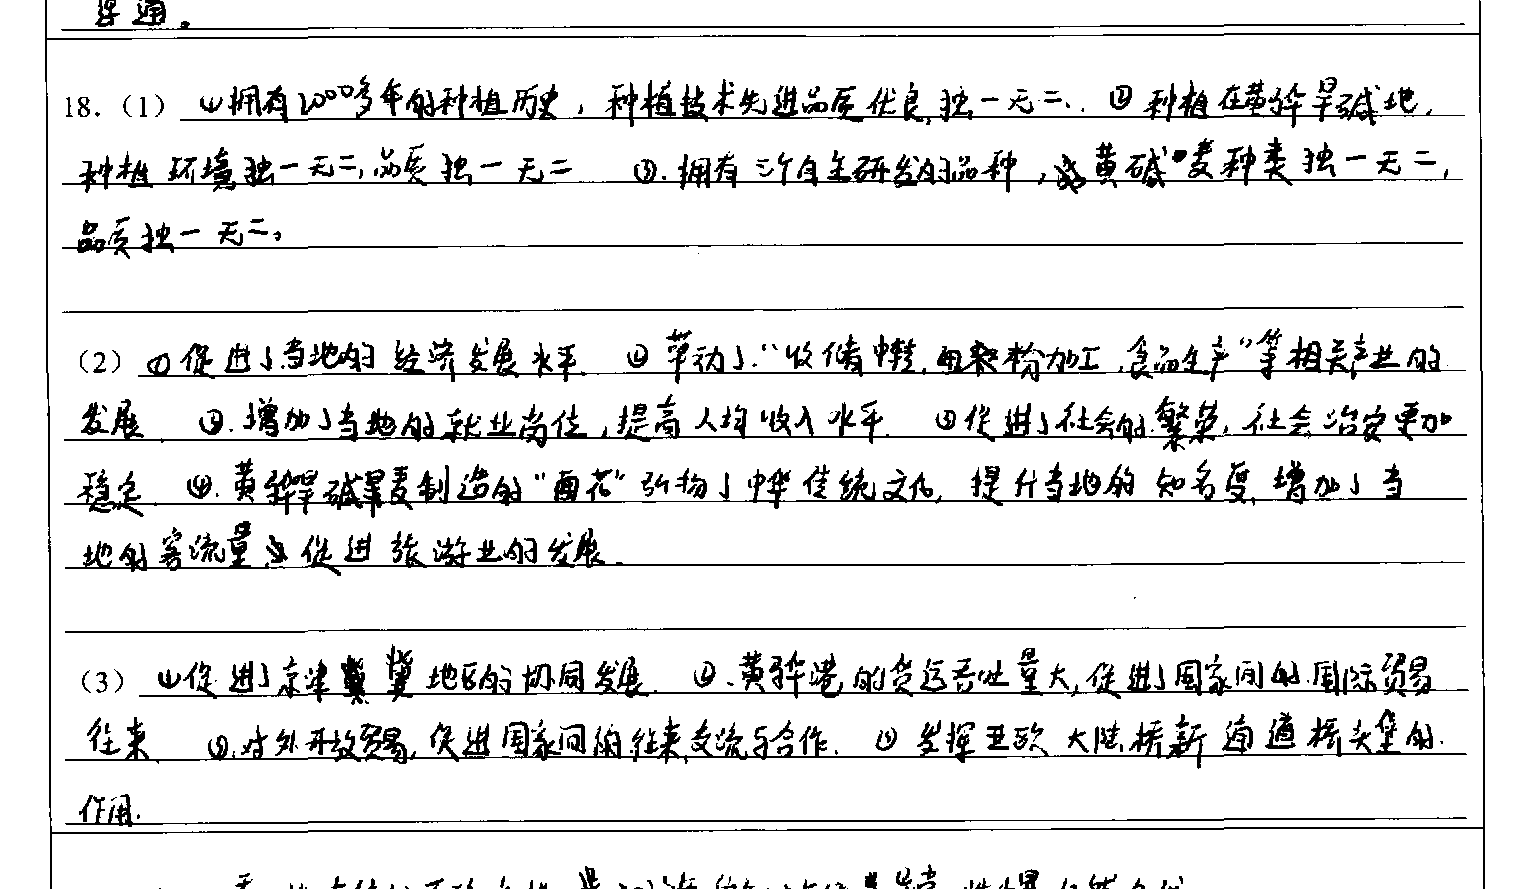 通。
18.（1）①拥有2000多年的种植历史，种植技术先进品质优良，独一无二。②种植在黄骅旱碱地，
种植环境独一无二，品质独一无二 ③.拥有三个自主研发的品种，黄碱麦种类独一无二，
品质独一无二。
（2）①促进了当地的经济发展水平. ②带动了“收储中转，面粉加工，食品生产”等相关产业的
发展. ③.增加了当地的就业岗位，提高人均收入水平. ④促进了社会的繁荣，社会治安更加
稳定. ④.黄骅旱碱麦制造的“面花”弘扬了中华传统文化，提升当地的知名度，增加了当
地的客流量 促进旅游业的发展.
（3）①促进了京津冀地区的协同发展. ②.黄骅港的货运吞吐量大，促进了国家间的国际贸易
往来. ③.对外开放贸易，促进国家间的往来交流与合作. ④发挥亚欧大陆桥新通道桥头堡的
作用.